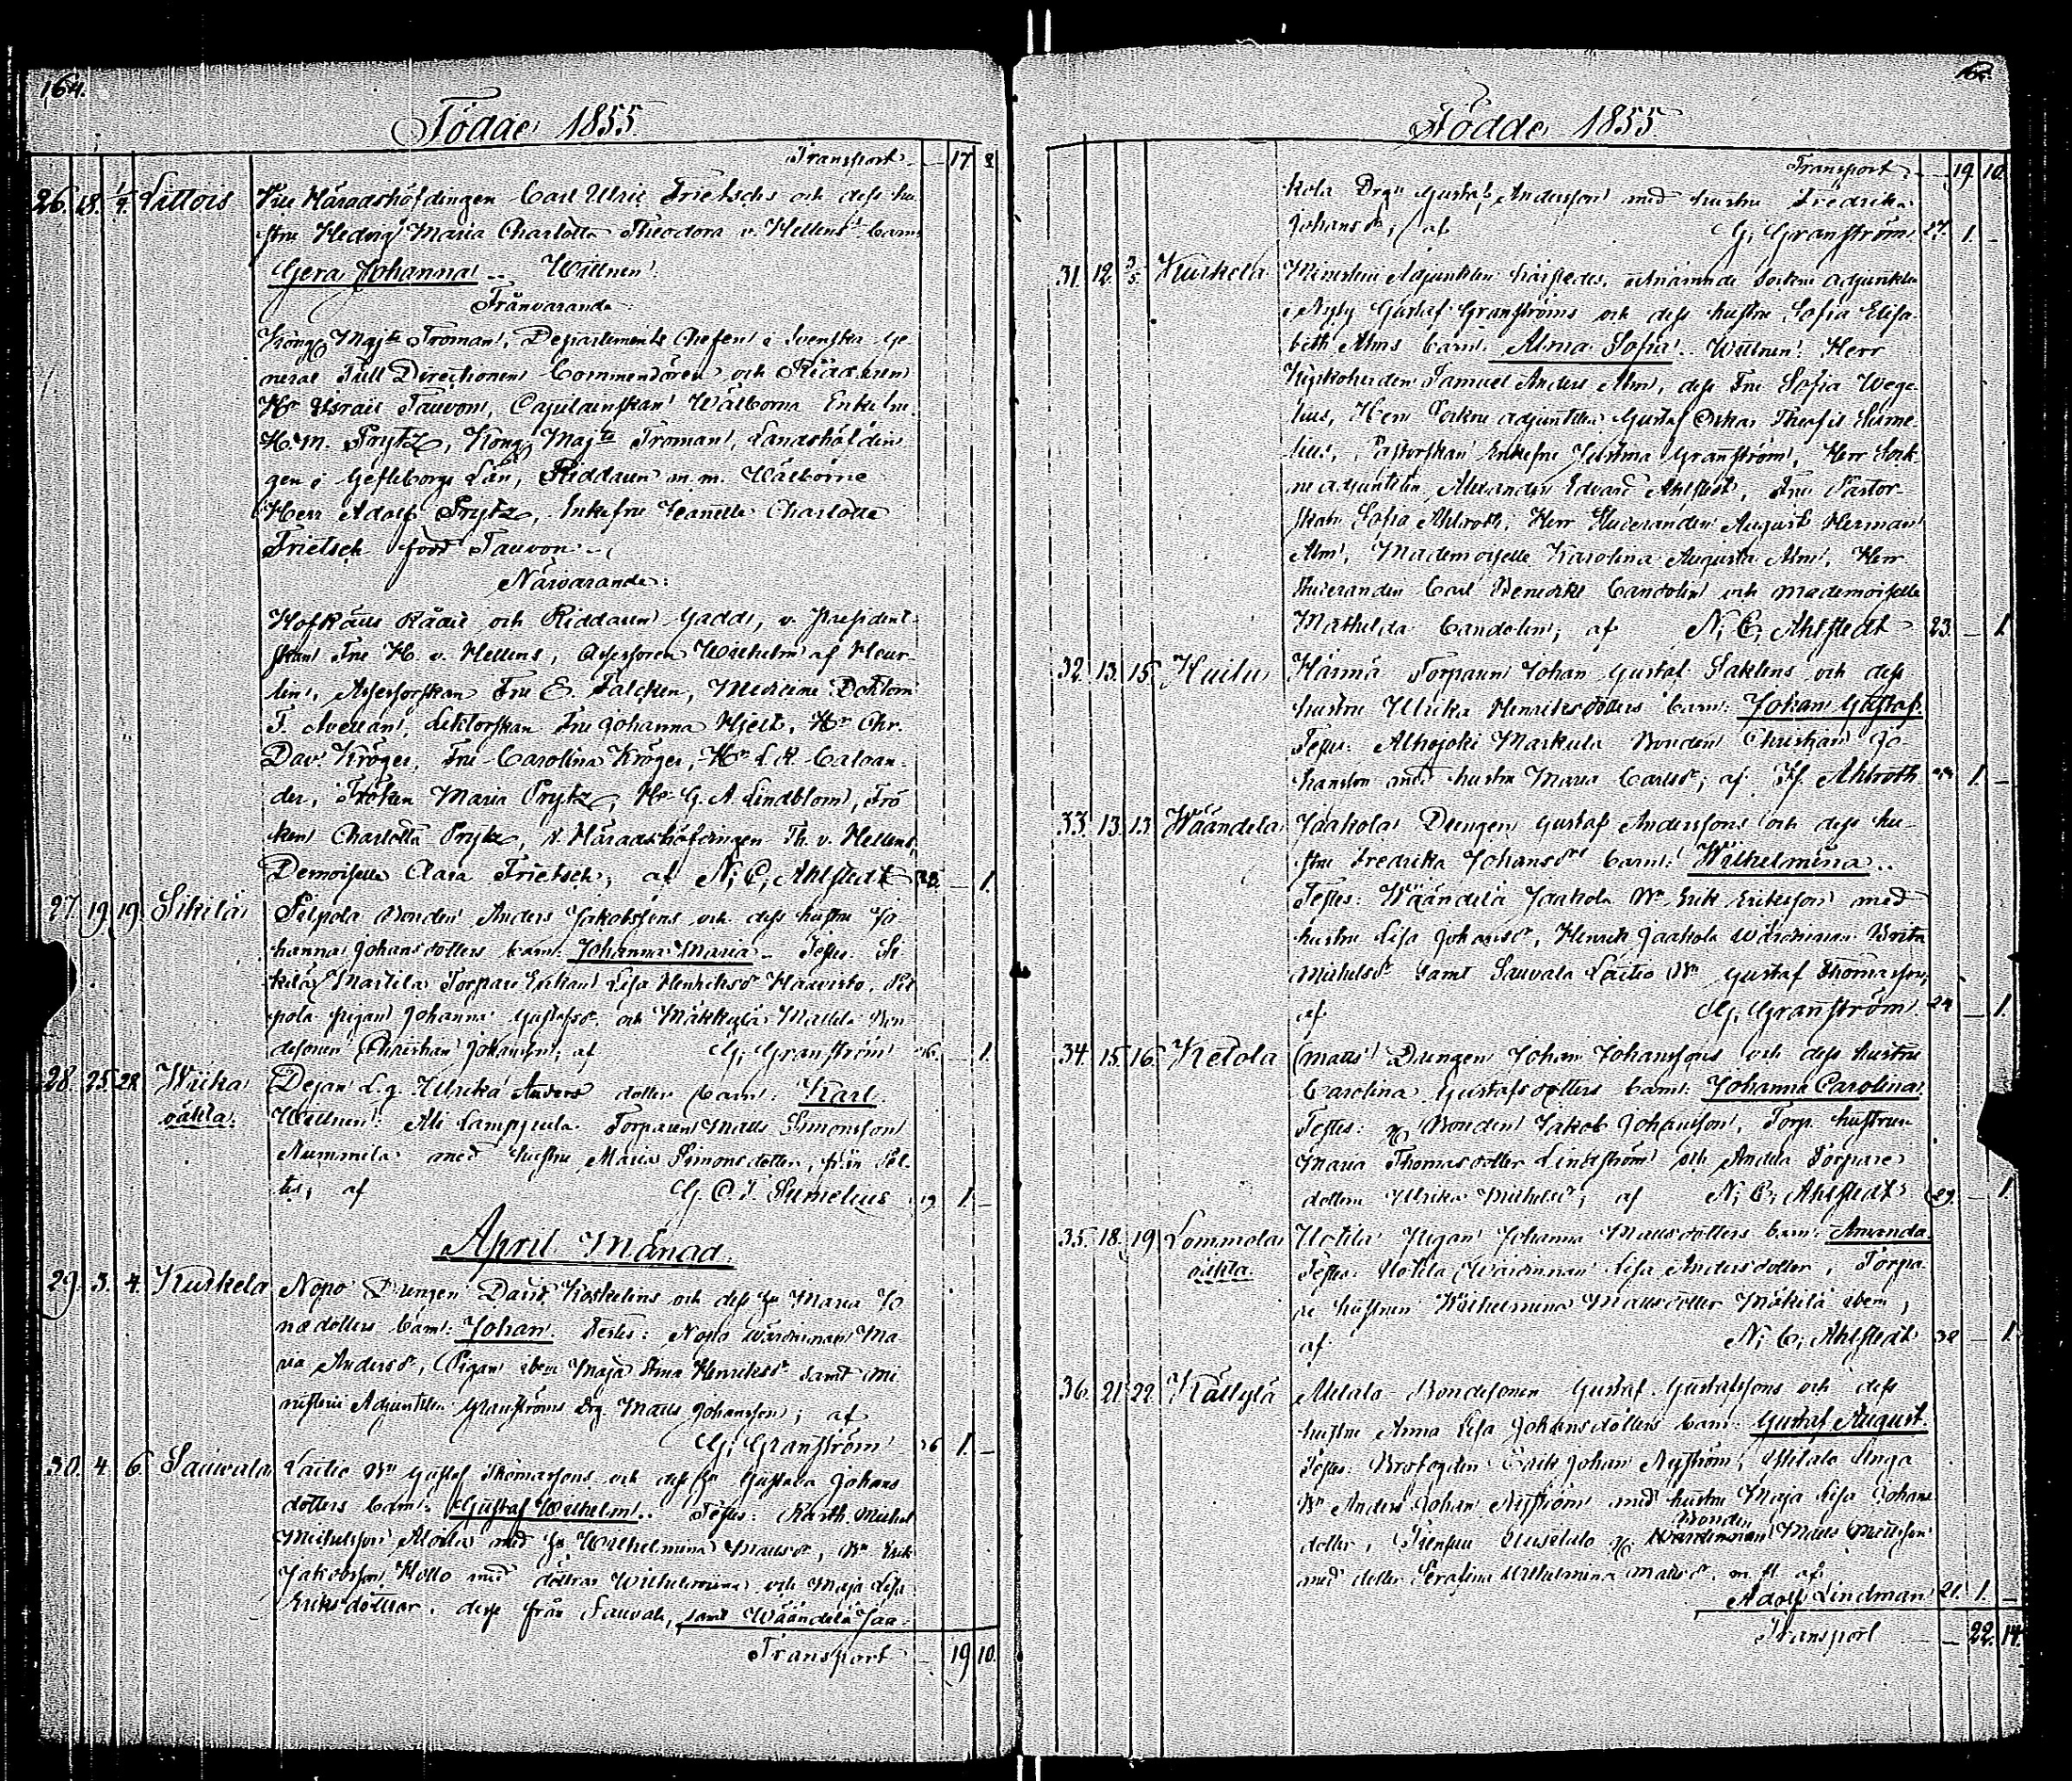 164.
Födde 1855.
Transport 17 8
26. 18. 1/4. Littois Vice Häradshöfdingen Carl Ulric Frietschs och dess hu-
stru Hedvig Maria Charlotta Theodora v. Hellens barn
Gera Johanna. Wittnen:
Frånvarande:
Kongl Majts Troman, Departements Chefen i Svenska Ge-
neral Tull Directionen Commendören och Riddaren
Hr Israel Tauvon, Capitainskan Wälborna Enkefru
H. M. Prytz, Kongl Majts Troman, Landshöfdin-
gen i Gefleborgs Län, Riddaren m. m. Wälborne
Herr Adolf Prytz, Enkefru Jeanette Charlotte
Frietsch född Tauvon.
Närvarande:
Hofrätts Rådet och Riddaren Gadd, v. President-
skan Fru H. v. Hellens, Assessoren Wilhelm af Heur-
lin, Assessorskan Fru E. Falcken, Medicine Doktorn
F. Avellan, Lektorskan Fru Johanna Hjelt, Hr Chr.
Dav. Kröger, Fru Carolina Kröger, Hr L. R. Caloan-
der, Fröken Maria Prytz, Hr G. A. Lindblom, Frö-
ken Charlotta Prytz, v. Häradshöfdingen Th. v. Hellens,
Demoiselle Clara Frietsch; af N. E. Ahlstedt 28. — 1.
27. 19. 19. Sikilä Pelpola Bonden Anders Jakobssons och dess hustru Jo-
hanna Johansdotters barn: Johanna Maria. Testes: Si-
kilä Martila Torpare Enkan Lisa Henriksdr Haavisto, Pel-
pola pigan Johanna Gustafsdr och Mäkkylä Mattila Bon-
desonen Christian Johansson; af G. Granström — 1.
28. 25. 28. Wiika Dejan L. g. Ulrika Anders dotters barn: Karl.
oäkta. Wittnen: Ali Lampjeula Torparen Matts Simonsson
Nummila med hustru Maria Simonsdotter, från
af G. O. T. Sumelius 19 1. —
April Månad.
29. 3. 4. Kurkela Nopo Drengen David Koskelins och dess hu Maria Jo-
nædotters barn: Johan. Testes: Nopo wärdinnan Ma-
ria Andersdr, Pigan ibm Maja Stina Henriksdr samt Mi-
nisterii Adjunkten Granströms drg. Matts Johansson; af
G. Granström 36 1. —
30. 4. 6. Sauvala Laitio Bn Gustaf Thomassons och dess hu Gustava Johans-
dotters barn: Gustaf Wilhelm. Testes: Michel
Michelsson med hu Wilhelmina Mattsdr, Bn Erik
Jakobsson Kollo med döttrar Wilhelmina och Maja Lisa
Eriksdöttrar, desse från Sauvala, samt Wäändelä Jaa-
Transport — 19 10.
165.
Födde 1855.
Transport — 19. 10.
kola Drgn Gustaf Andersson med hustru Fredrika
Johansdr; af G. Granström 27. 1. —
31. 12. 3/5. Kurkela Ministerii Adjunkten härstedes, utnämnde Sockne adjunkten
i Nyby Gustaf Granströms och dess hustru Sofia Elisa-
beth Alms barn: Alma Sofia. Wittnen: Herr
Kyrkoherden Samuel Anders Alm, dess Fru Sofia Wege-
lius, Herr Sockne adjunkten Gustaf Oskar Sume-
lius, Pastorskan Enkefru Jelstima Granström, Herr Sock-
ne adjunkten Alexander Edvard Ahlstedt, Fru Pastor-
skan Sofia Ahlroth, Herr Studeranden August Herman
Alm, Mademoiselle Karolina Augusta Alm, Herr
Studeranden Carl Benedikt Candolin och Mademoiselle
Mathilda Candolin; af N. E. Ahlstedt 23. — 1.
32. 13. 15. Huilu Hännä Torparen Johan Gustaf Saklens och dess
hustru Ulrika Henriksdotters barn: Johan Gustaf.
Testes: Alhojoki Markula Bonden Christian Jo-
hansson med hustru Maria Carlsdr; af If. Ahlroth 1. —
33. 13. 13. Wäändelä Jaakola Drengen Gustaf Anderssons och dess hu-
stru Fredrika Johansdrs barn: Wilhelmina.
Testes: Wäändelä Jaakola Bn Erik Eriksson med
hustru Lisa Johansdr, Henrik Jaakola wärdinnan Brita
Michelsdr samt Sauvala Laitio Bn Gustaf Thomasson;
af G. Granström 24 — 1.
34. 15. 16. Ketola Matts Drengen Johan Johanssons och dess hustru
Carolina Gustafsdotters barn: Johanna Carolina.
Testes: Bonden Jakob Johansson, Torp. hustrun
Maria Thomasdotter Lindström och Andila Torpare
dottern Ulrika Michelsdr; af N. E. Ahlstedt 29. — 1.
35. 18. 19. Lommola Uotila Pigan Johanna Mattsdotters barn: Amanda.
oäkta. Testes: Uotila Wärdinnan Lisa Andersdotter, Torpa-
re hustrun Wilhelmina Mattsdotter Mäkilä ibem;
af N. E. Ahlstedt 38 — 1.
36. 21. 22. Kättylä Alitalo Bondesonen Gustaf Gustafssons och dess
hustru Anna Lisa Johansdotters barn: Gustaf August.
Testes: Brofogden Erik Johan Nyström, Inga
Bn Anders Johan Nyström med hustru Maja Lisa Johans-
dotter, Uusitalo Bonden Wärdinnan Matts Mattsson
med dotter Serafina Wilhelmina Mattsdr, m. fl. af
Adolf Lindman 21. 1. —
Transport — 22. 14.